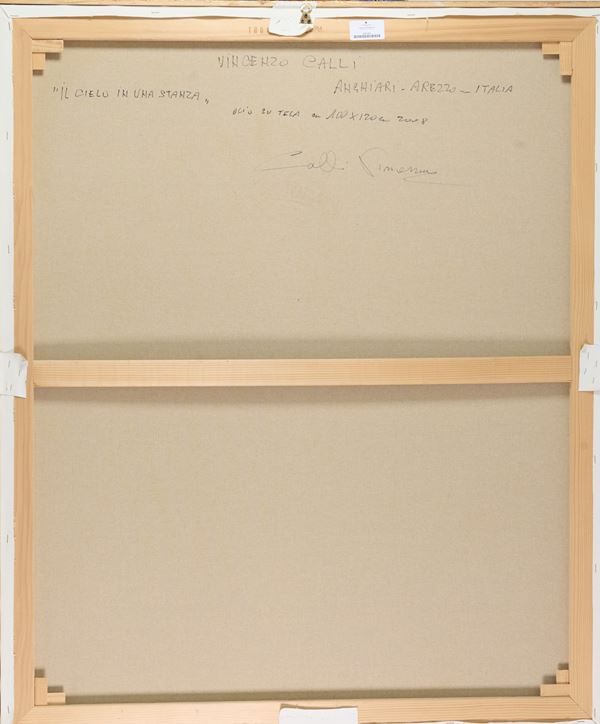 VINCENZO CALLI
"IL CIELO IN UNA STANZA"
ANGHIARI - AREZZO - ITALIA
OLIO SU TELA cm 100X120 2008
Calli Vincenzo